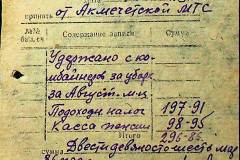 принять от Акмечетской МТС
Дата Содержание записи Сумма
Удержано с ком-
байнеров за уборк
за Август м-ц
Подоходн. налог 197-91
Касса пенсии 98-95
Итого 296-86
сумма Двести девяносто шесть